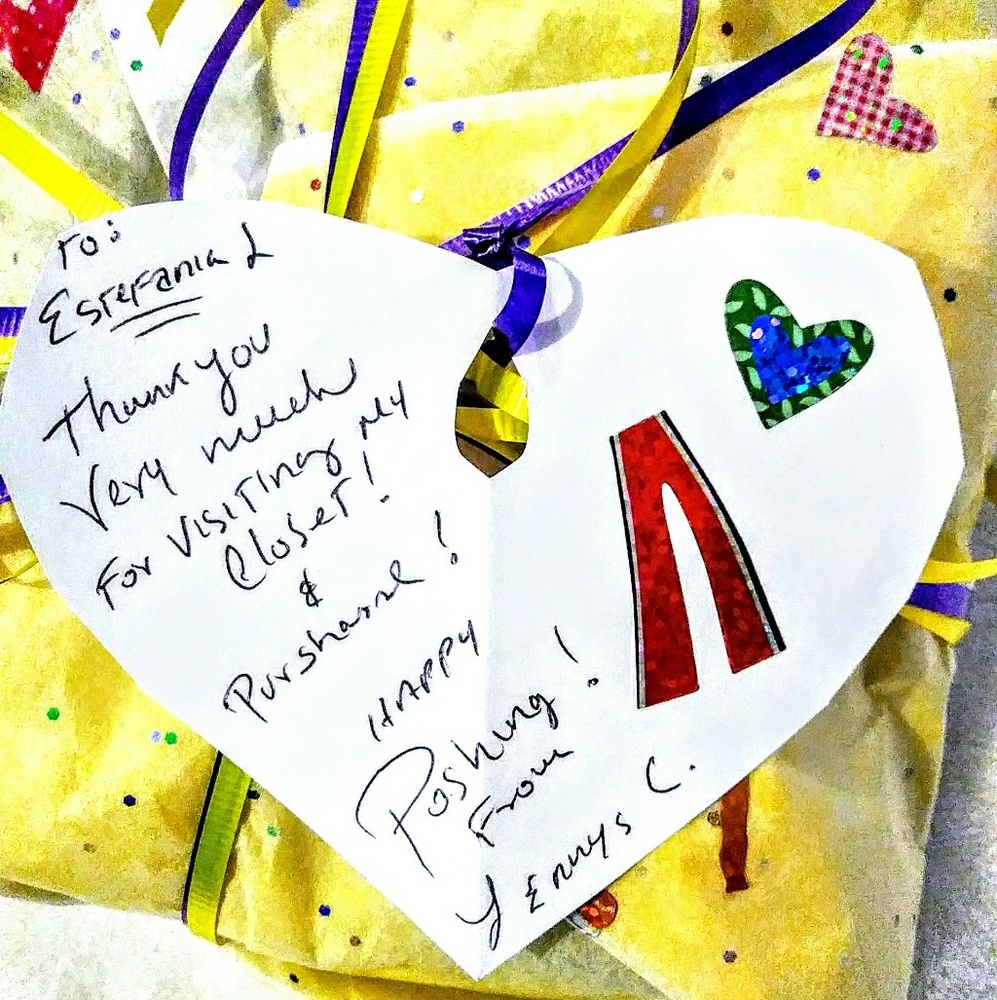 To:
Estefania L
Thank you
Very much
For visiting my
Closet!
&
Purshase!
HAPPY
Poshing!
From
Yennys C.